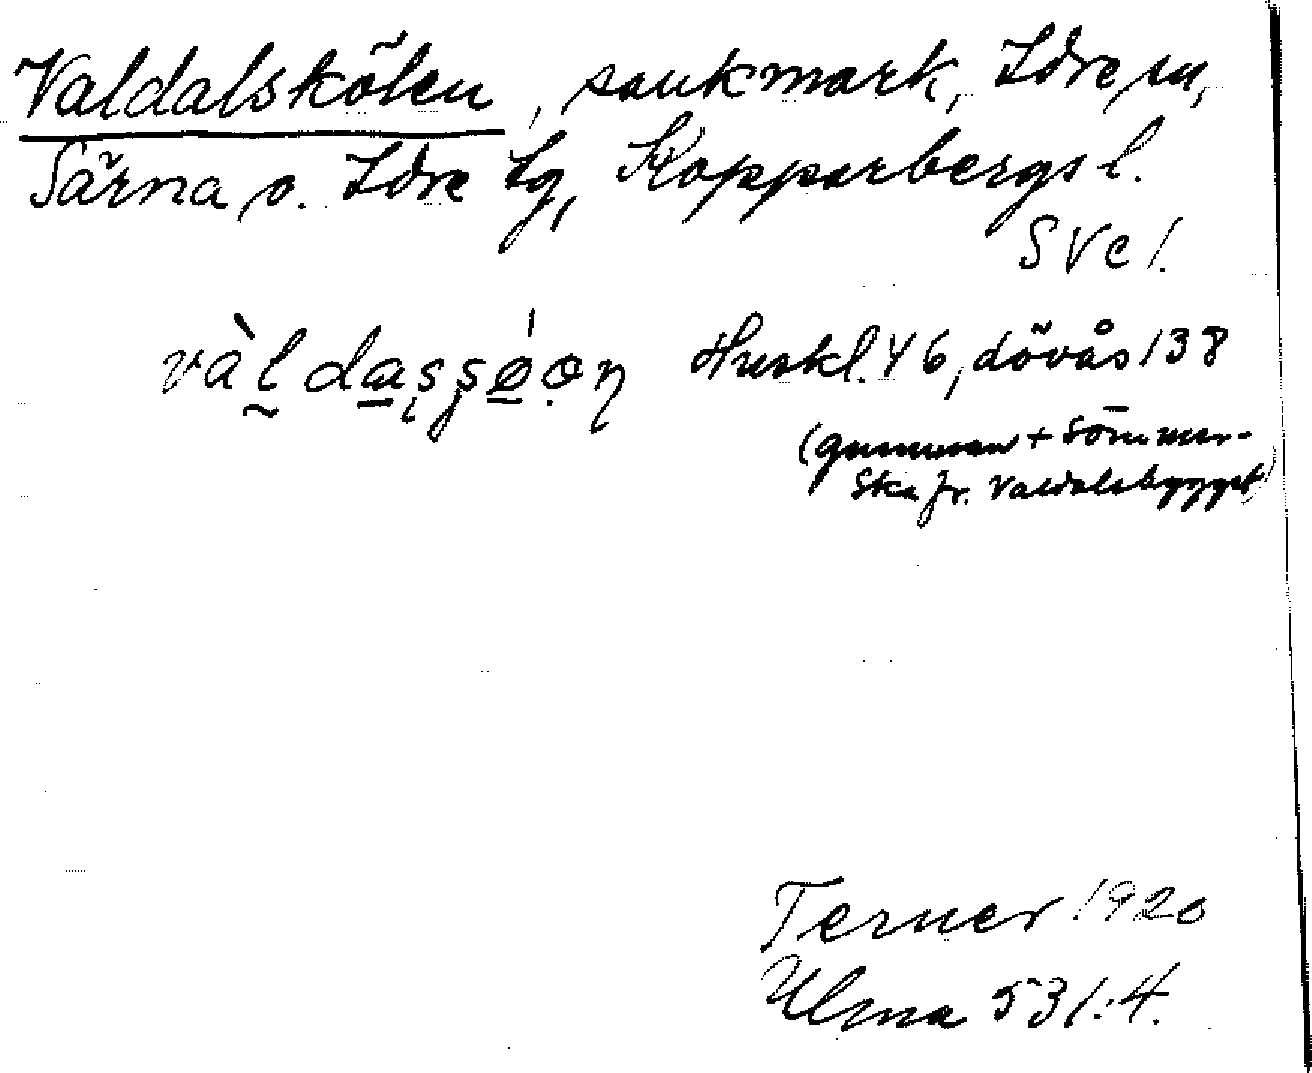 Valdalskölen, sankmark, Idre sn,
Särna o. Idre tg, Kopparbergs l.
SVC 1.
vàldașșøon Huskl. 46, dövås 138
(gumman + Sömmer-
ska fr. Valdalsbygget)
Terner 1920
Ulma 531:4.